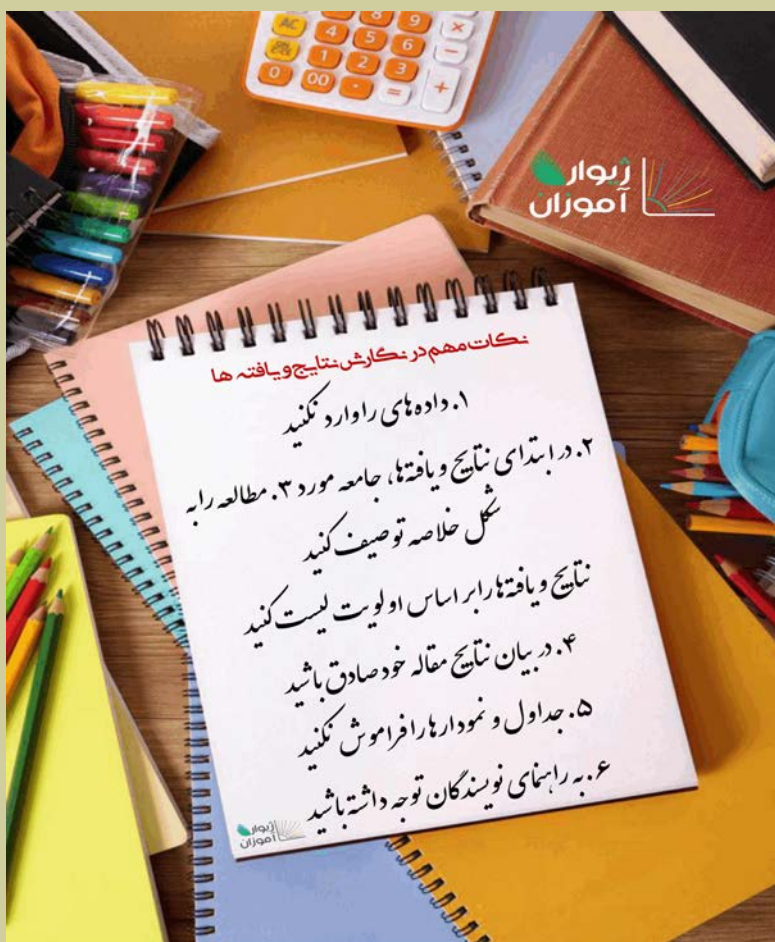 AC
9
×
4
5
6
−
1
2
3
0
00
·
=
+
ژیوار
آموزان
نکات مهم در نگارش نتایج و یافته ها
۱. داده های را وارد نکنید
۲. در ابتدای نتایج و یافته‌ها، جامعه مورد ۳. مطالعه را به
شکل خلاصه توصیف کنید
نتایج و یافته‌ها را بر اساس اولویت لیست کنید
۴. در بیان نتایج مقاله خود صادق باشید
۵. جداول و نمودارها را فراموش نکنید
۶. به راهنمای نویسندگان توجه داشته باشید
ژیوار
آموزان